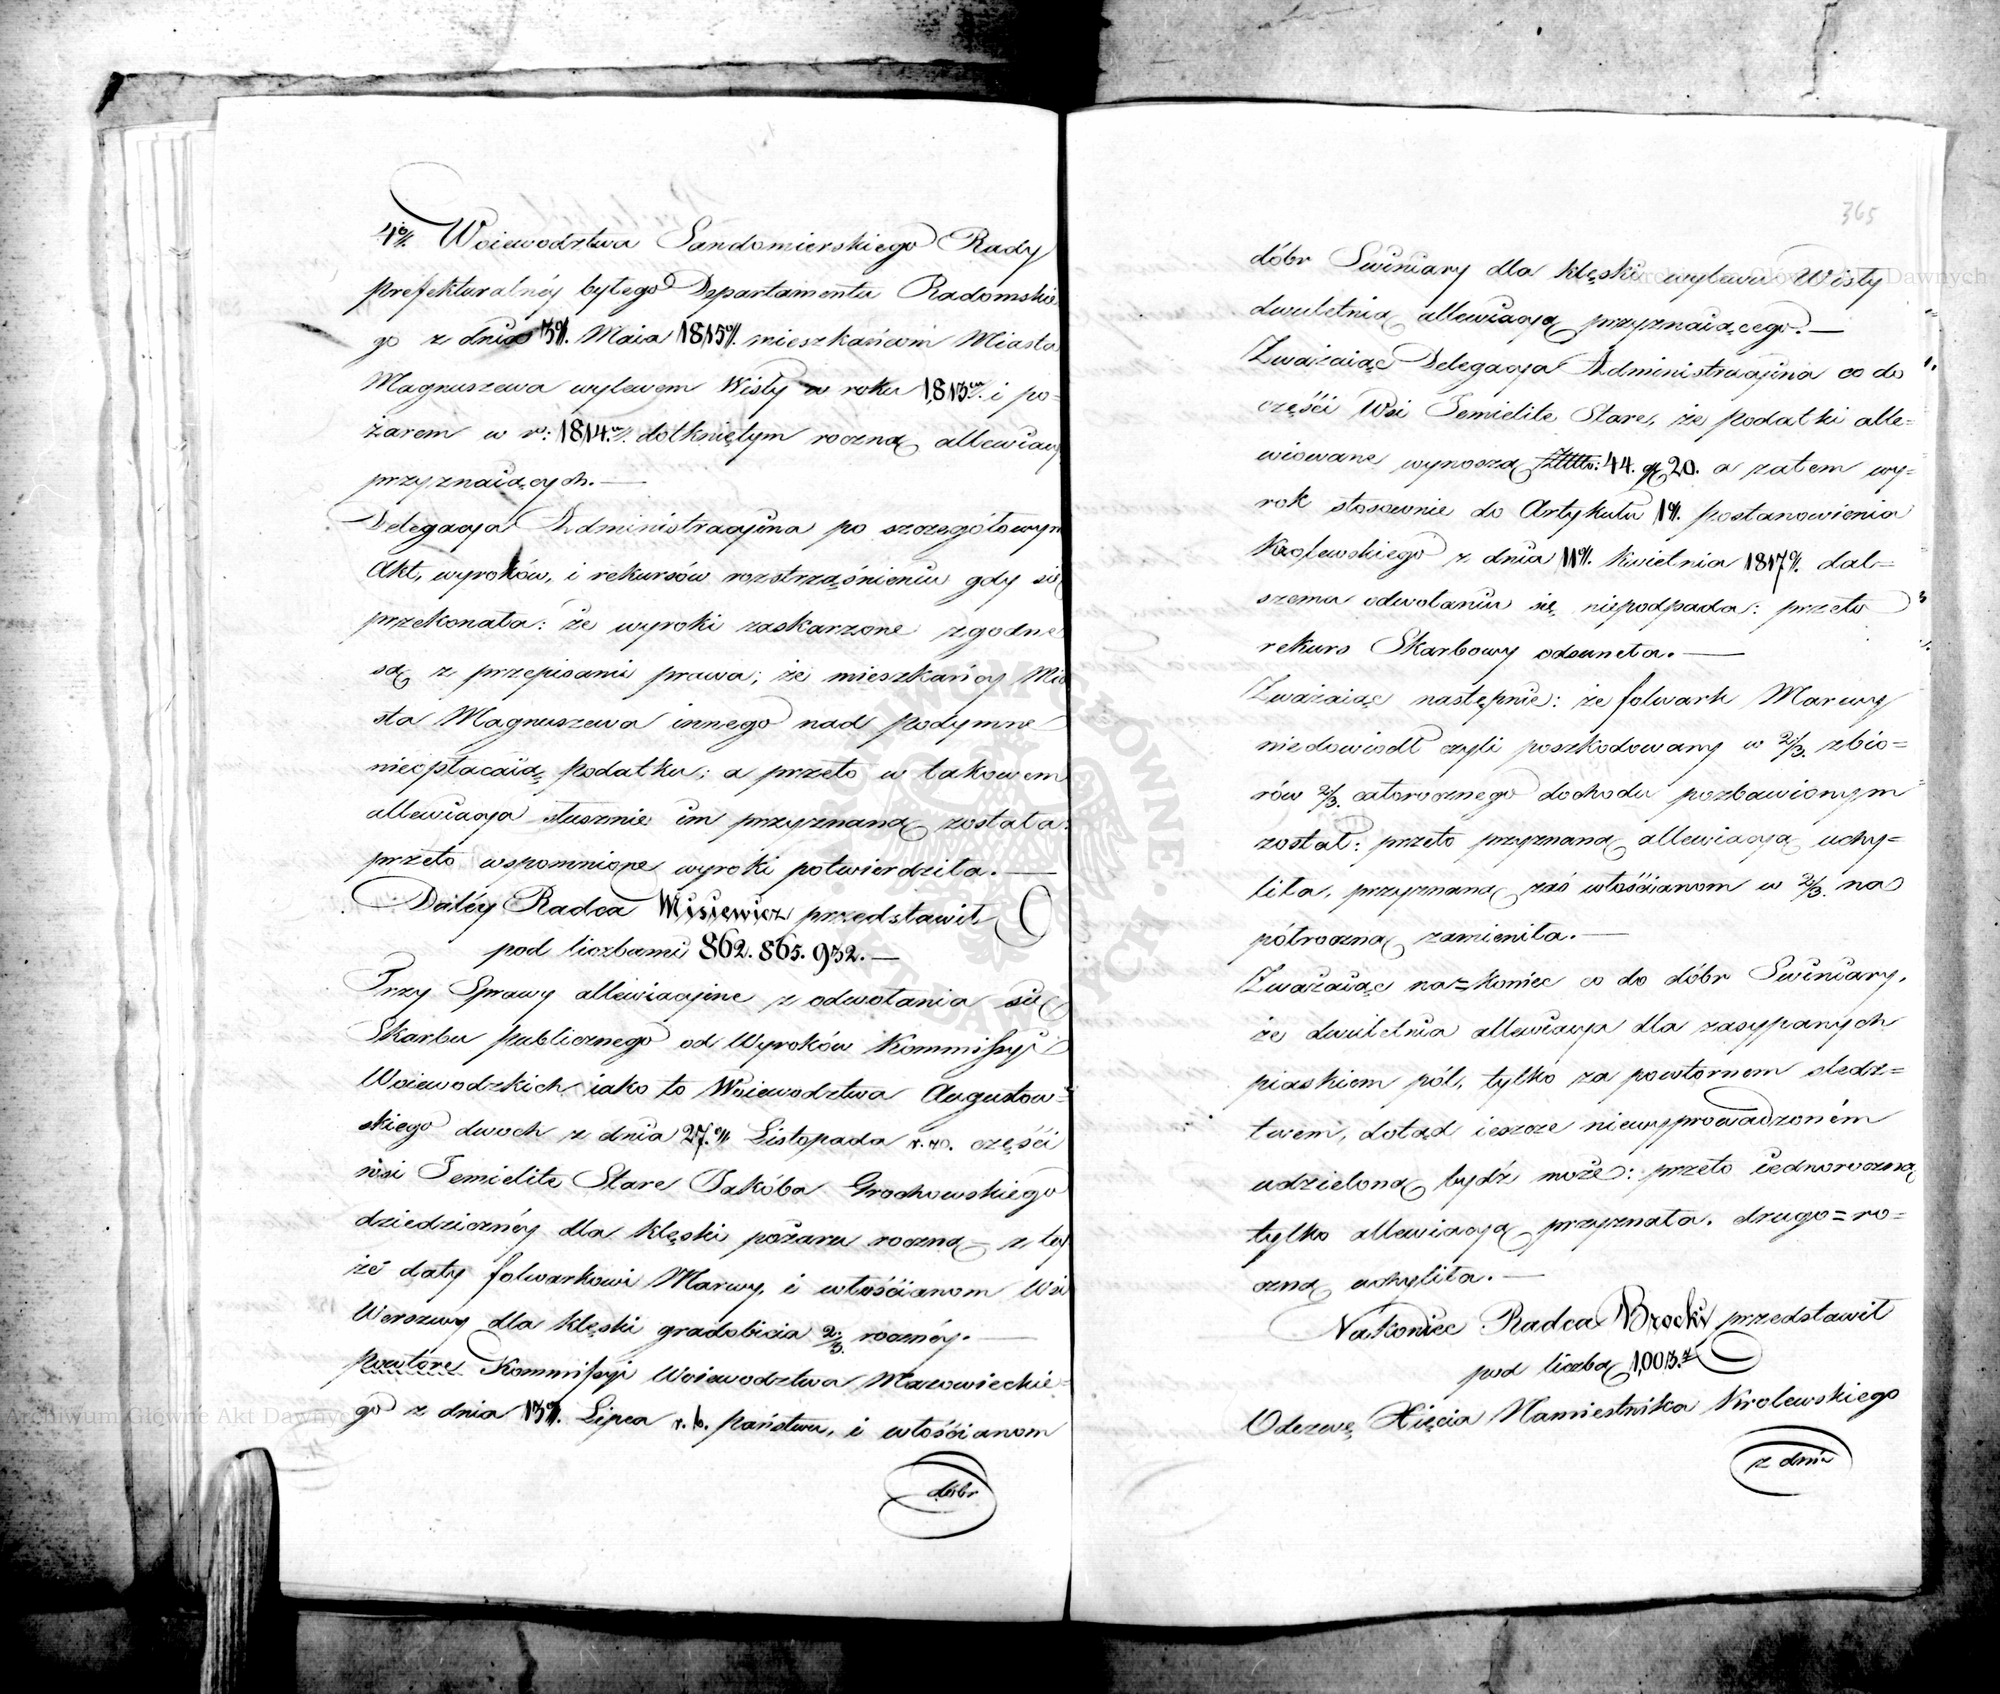 4o/. Woiewodztwa Sandomierskiego Rady
prefekturalnéy byłego Departamentu Radomskie
go z dnia 3o/. Maia 1815o/. mieszkańcom Miasta
Magnuszewa wylewem Wisły w roku 1813m/. i po=
żarem w ro: 1814.m/. dotkniętym roczną allewiacyą
przyznaiących.—
Delegacya Administracyina po szczegółowym
Akt, wyroków, i rekursów roztrząśnieniu gdy się
przekonała: że wyroki zaskarzone zgodne
są z przepisami prawa; że mieszkańcy Mia
sta Magnuszewa innego nad podymne
nieopłacaią podatku; a przeto w takowem
allewiacya słusznie im przyznaną została:
przeto wspomnione wyroki potwierdziła.—
Daléy Radca Misiewicz przedstawił
pod liczbami 862. 865. 932.—
Trzy Sprawy allewiacyine z odwołania się
Skarbu publicznego od Wyroków Kommissyi
Woiewodzkich iako to Woiewodztwa Augustow=
skiego dwoch z dnia 27.o/. Listopada r. z. części
wsi Jemielite Stare Jakóba Grochowskiego
dziedziczney dla klęski pożaru roczną — z tey
że daty folwarkowi Marwy, i włościanom Wsi
Werszewy dla klęski gradobicia 2/3. roczney.—
powtore Kommissyi Woiewodztwa Mazowieckie=
go z dnia 13o/. Lipca r. b. państwu, i włościanom
dóbr
365
dóbr Swiniary dla klęski wylewu Wisły
dwuletnią allewiacyą przyznaiącego.—
Zważaiąc Delegacya Administracyina co do
części Wsi Jemielite Stare, że podatki alle=
wiowane wynoszą 44. gr 20. a zatem wy=
rok stosownie do Artykułu 1o/. postanowienia
Krolewskiego z dnia 11o/. Kwietnia 1817o/. dal=
szemu odwołaniu się niepodpada: przeto
rekurs Skarbowy odsuneła.—
Zważaiąc następnie: że folwark Marwy
niedowiodł czyli poszkodowany w 2/3. zbio=
rów 2/3. całorocznego dochodu pozbawionym
został: przeto przyznaną allewiacyą uchy=
liła, przyznaną zaś włościanom w 2/3. na
półroczną zamieniła.—
Zważaiąc na=koniec co do dóbr Swiniary,
że dwuletnia allewiacya dla zasypanych
piaskiem pól, tylko za powtornem sledz=
twem, dotąd ieszcze niewyprowadzoném
udzieloną bydź może: przeto iednoroczną
tylko allewiacyą przyznała. drugo=ro=
czną uchyliła.—
Nakoniec Radca Brocki przedstawił
pod liczbą 1,003.
Odezwę Xięcia Namiestnika Krolewskiego
z dnia
Archiwum Główne Akt Dawnych